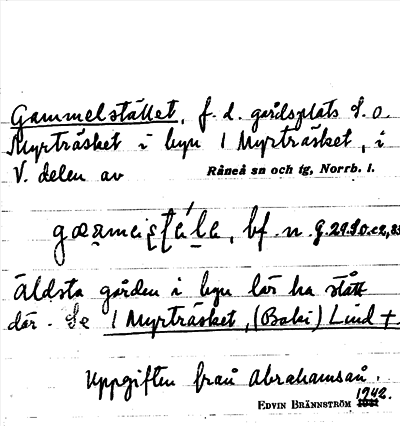 Gammelstället, f. d. gårdsplats S. o.
Myrträsket i byn 1 Myrträsket, i
V. delen av Råneå sn och tg, Norrb. l.
bf. n.
Äldsta gården i byn lär ha stått
där. Se 1 Myrträsket, (Babi) Lind +.
Uppgiften från Abrahamsan.
EDVIN BRÄNNSTRÖM 1942.